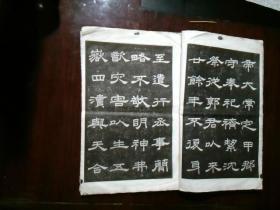 帝大常定甲郡
守奉祀禱絜沈
祭從郭君以來
廿餘年不復身
至遣行丞事簡
略不敬明神弗
歆灾害以生五
嶽四瀆與天合